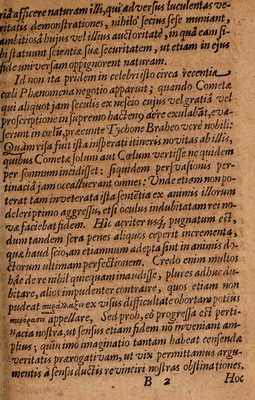 ria afficere naturam illi, qui adversus luculentas ve-
ritatis demonstrationes, nihilo secius sese muniant,
ambitiosâ hujus vel illius auctoritate, in quâ eam si-
bi statuunt scientiæ suæ securitatem, ut etiam in ejus
fide universam oppignorent naturam.
Id non ita pridem in celebri isto circa recentia
cœli Phænomena negotio apparuit; quando Cometæ
qui aliquot jam seculis ex nescio cujus vel gratiâ vel
proscriptione in supremo hactenus aëre exulabat, eva-
serunt in cœlũ, præeunte Tychone Braheo verè nobili:
Quàm risa fuit ista insperati itineris novitas ab illis,
quibus Cometæ solum aut Cœlum vertisse ne quidem
per somnium incidisset: siquidem persvasionis per-
tinaciâ jam occalluerant omnes: Unde etiam non po-
terat tam inveterata ista sentētia ex animis illorum
deleri primo aggressu, etsi oculis indubitatam rei no-
væ faciebat fidem. Hic acriter usq; pugnatum est,
dum tandem sera penes aliquos ceperit incrementa,
quæ haud scio, an etiamnum adepta sint in animis do-
ctorum ultimam perfectionem. Credo enim multos
hâc de re nihil quicquam inaudisse, plures adhuc du-
bitare, alios impudenter contraire, quos etiam non
pudeat ex visus difficultate obortam potius
appellare, Sed proh, eò progressa est perti-
nacia nostra, ut sensus etiam fidem nō inveniant am-
plius; quin imò imaginatio tantam habeat censendæ
veritatis prærogativam, ut vix permittamus argu-
mentis a sensu ductis revinciri nostras obstinationes.
B 2 Hoc